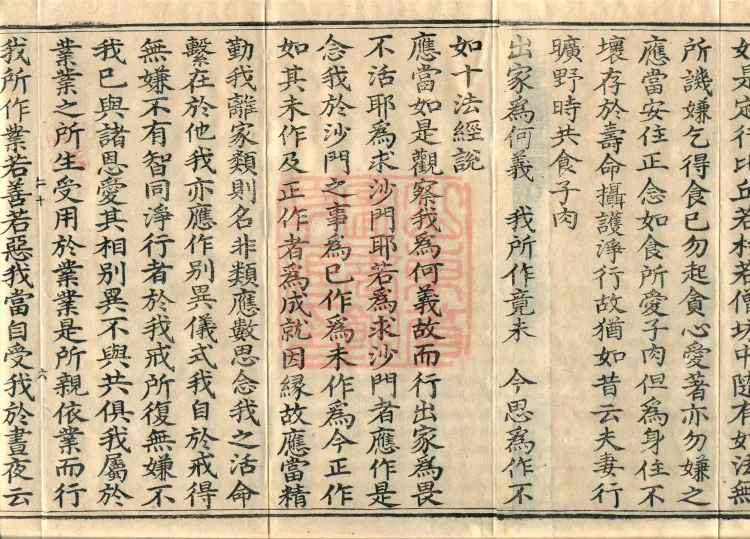 如是定行比丘若村若僧坊中隨有如法無
所譏嫌乞得食已勿起貪心愛著亦勿嫌之
應當安住正念如食所愛子肉但為身住不
壞存於壽命攝護淨行故猶如昔云夫妻行
曠野時共食子肉
出家為何義　我所作竟未　今思為作不
如十法經說
應當如是觀察我為何義故而行出家為畏
不活耶為求沙門耶若為求沙門者應作是
念我於沙門之事為已作為未作為今正作
如其未作及正作者為成就因緣故應當精
勤我離家類則名非類應數思念我之活命
繫在於他我亦應作別異儀式我自於戒得
無嫌不有智同淨行者於我戒所復無嫌不
我已與諸恩愛其相別異不與共俱我屬於
業業之所生受用於業業是所親依業而行
二十　六
我所作業若善若惡我當自受我於晝夜云